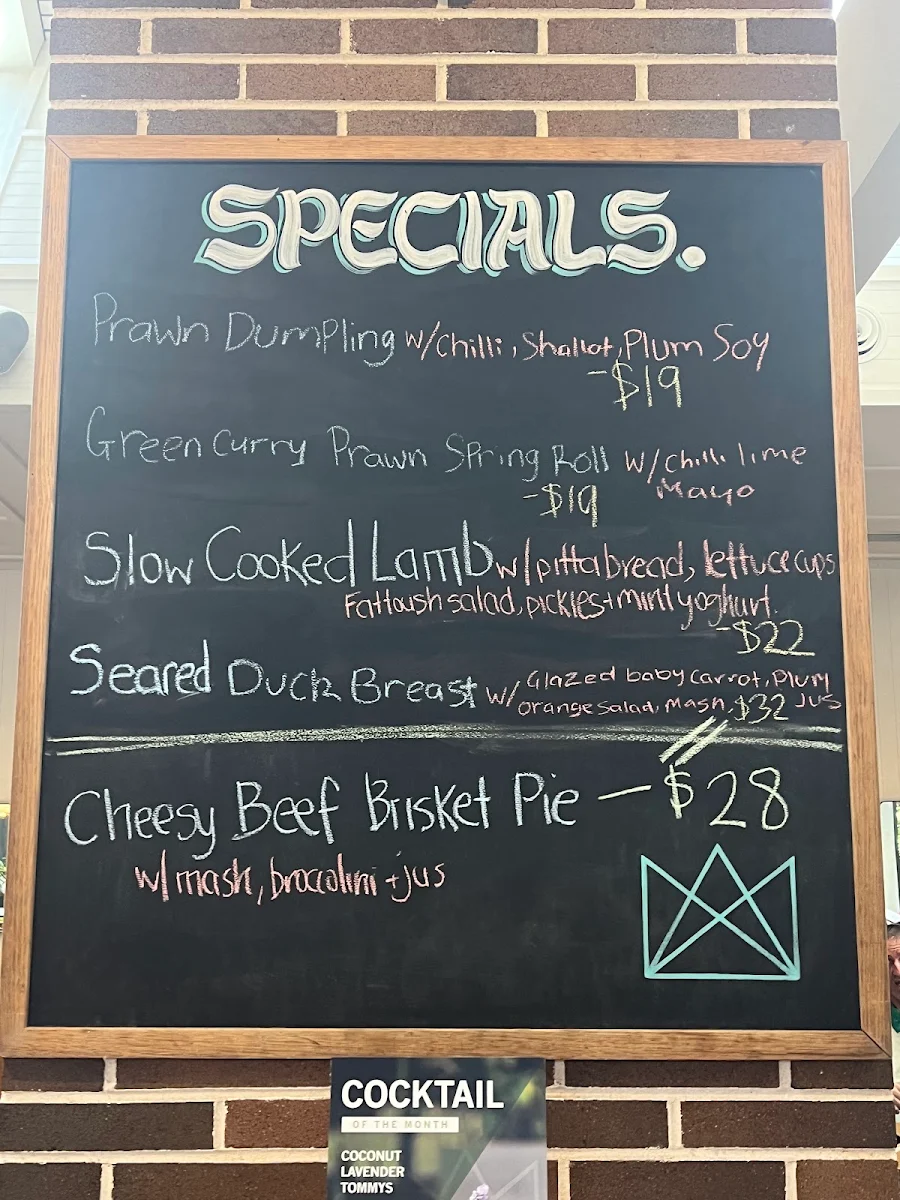 SPECIALS.
Prawn Dumpling w/chilli, Shallot, Plum Soy
-$19
Green Curry Prawn Spring Roll w/chilli lime
Mayo
-$19
Slow Cooked Lamb w/ pitta bread, lettuce cups
Fattoush salad, pickles + mint yoghurt.
-$22
Seared Duck Breast w/ Glazed baby carrot, Plum
orange salad, Mash, $32 Jus
Cheesy Beef Brisket Pie — $28
w/ mash, broccolini + jus
COCKTAIL
OF THE MONTH
COCONUT
LAVENDER
TOMMYS